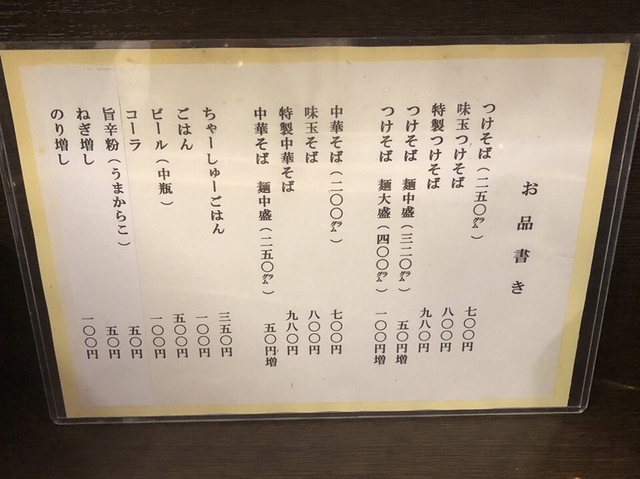 お品書き
つけそば（二五〇㌘） 七〇〇円
味玉つけそば 八〇〇円
特製つけそば 九八〇円
つけそば 麺中盛（三二〇㌘） 五〇円増
つけそば 麺大盛（四〇〇㌘） 一〇〇円増
中華そば（二〇〇㌘） 七〇〇円
味玉そば 八〇〇円
特製中華そば 九八〇円
中華そば 麺中盛（二五〇㌘） 五〇円増
ちゃーしゅーごはん 三五〇円
ごはん 一〇〇円
ビール（中瓶） 五〇〇円
コーラ 一〇〇円
旨辛粉（うまからこ） 五〇円
ねぎ増し 五〇円
のり増し 一〇〇円